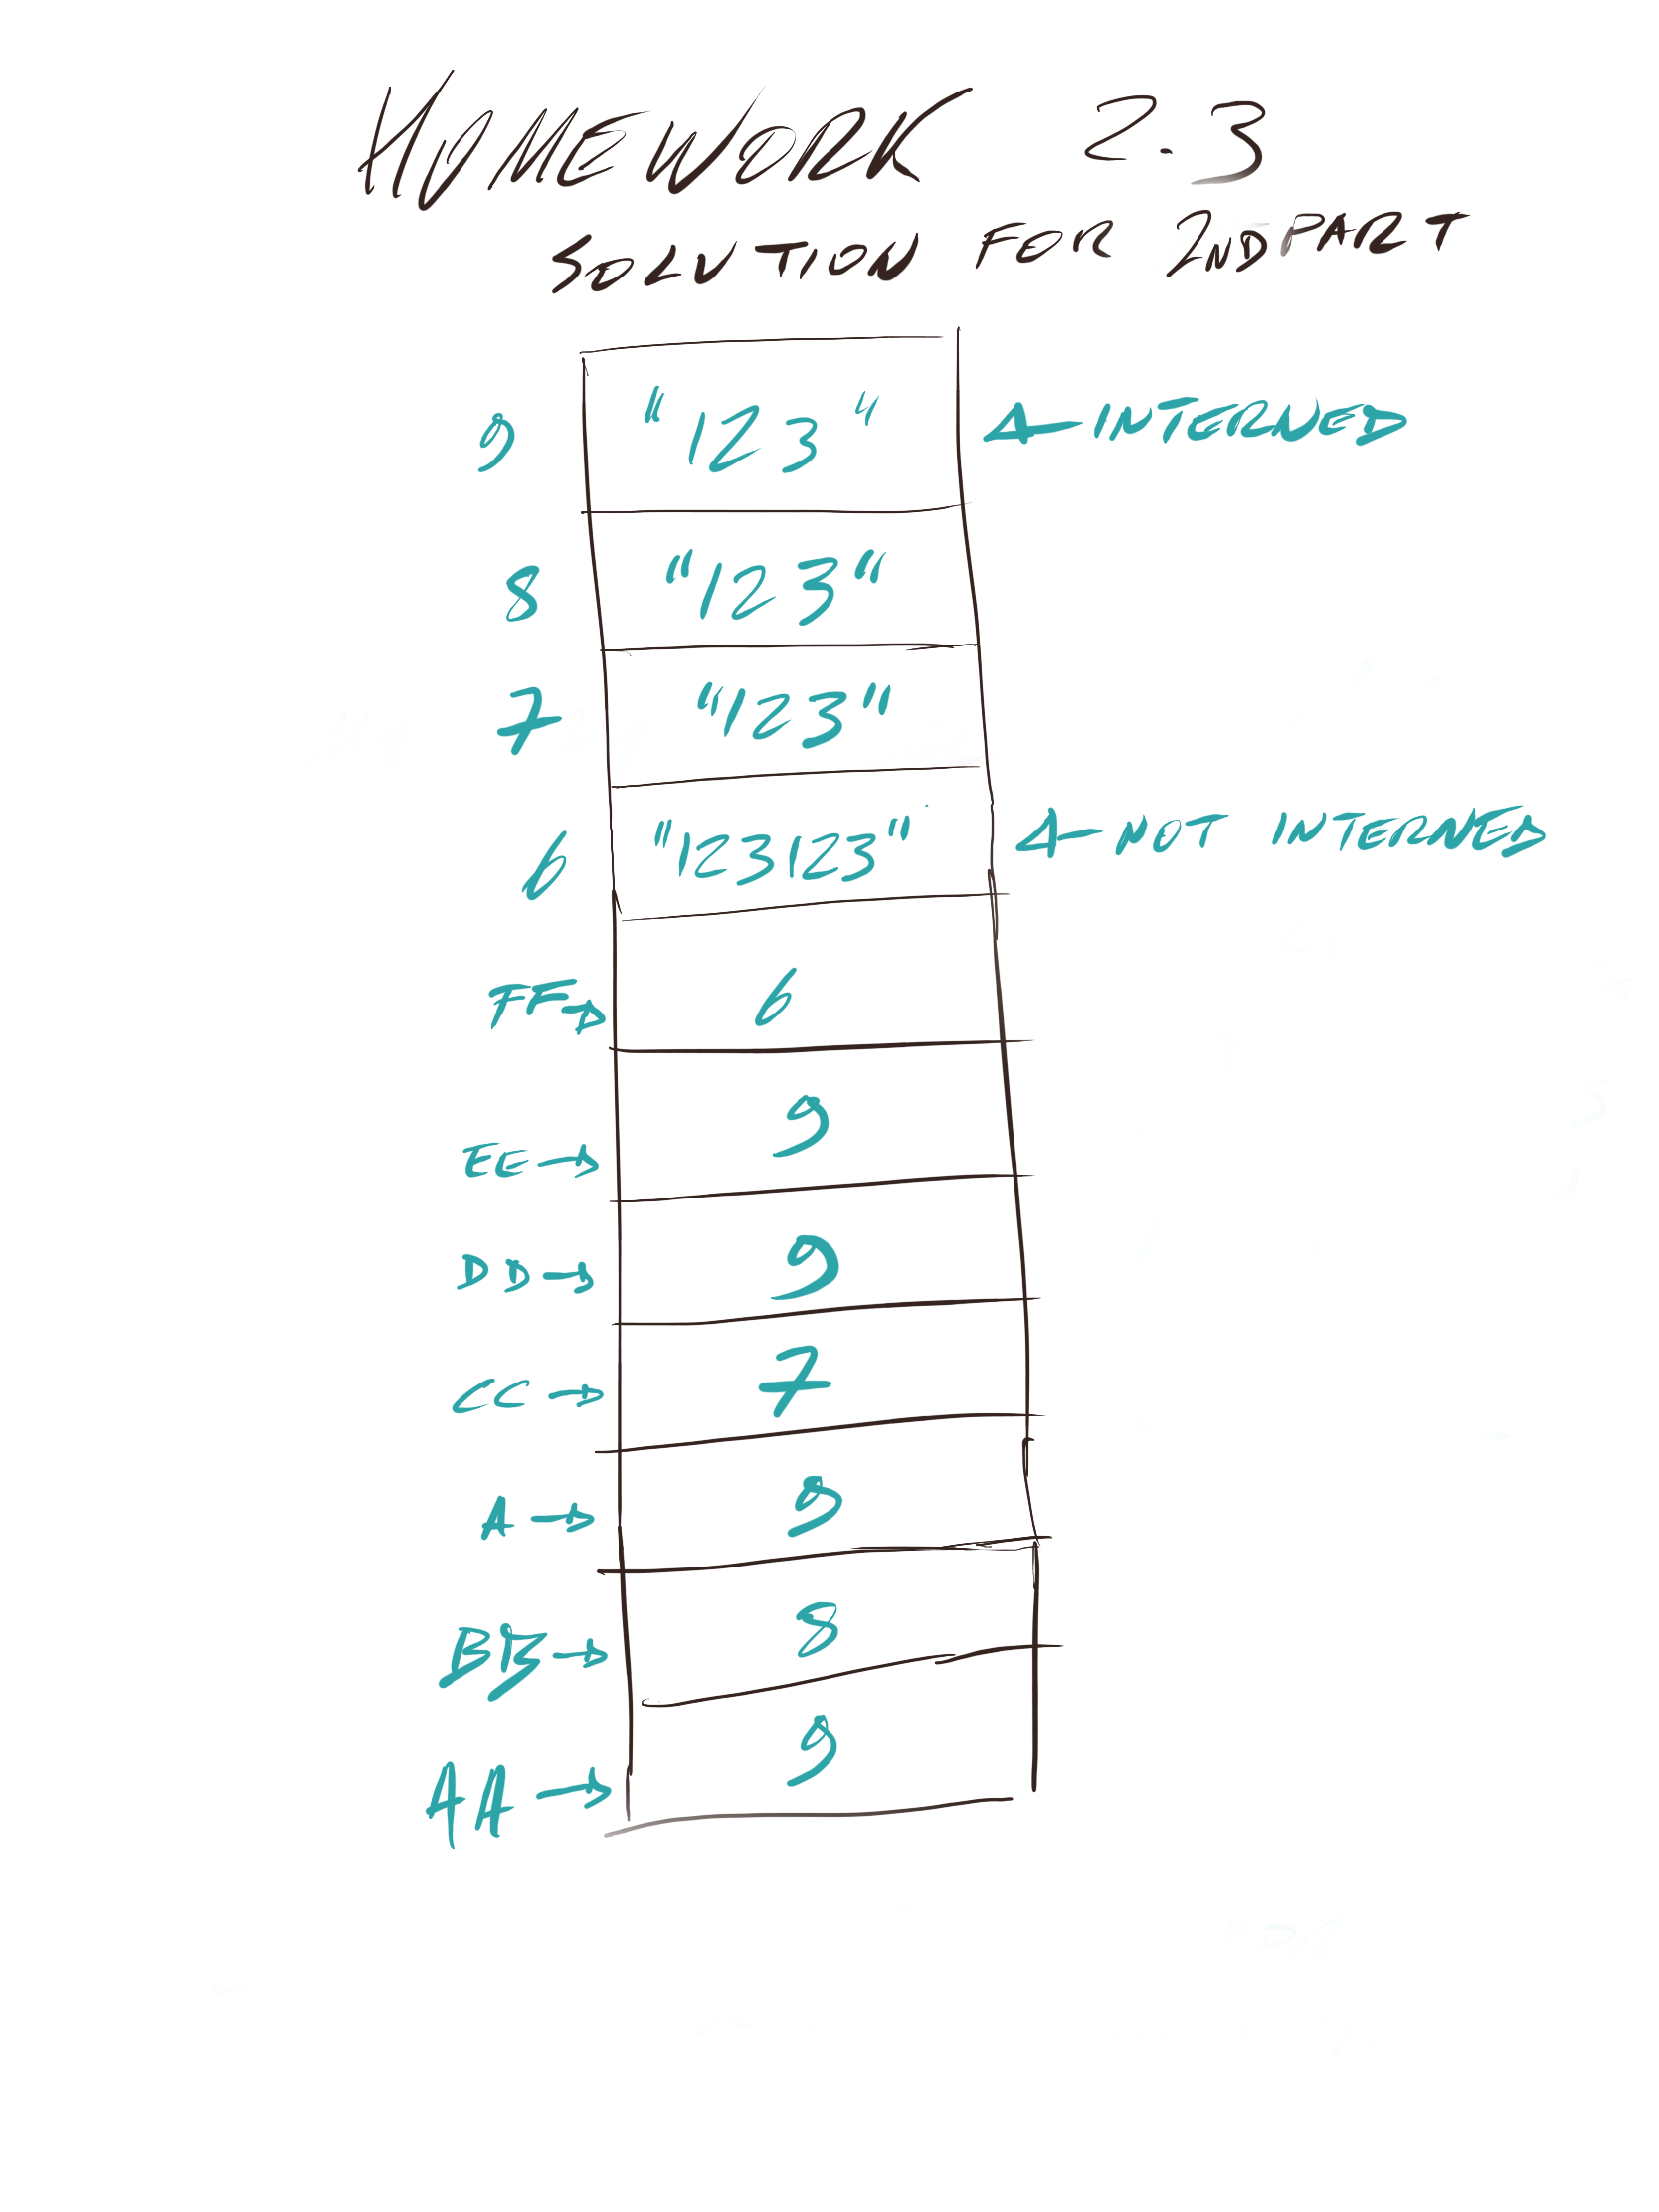 HOMEWORK 2.3
SOLUTION FOR 2ND PART
9 "123" INTERNED
8 "123"
7 "123"
6 "123123" NOT INTERNED
FF 6
EE 9
DD 9
CC 7
A 9
BB 8
AA 9